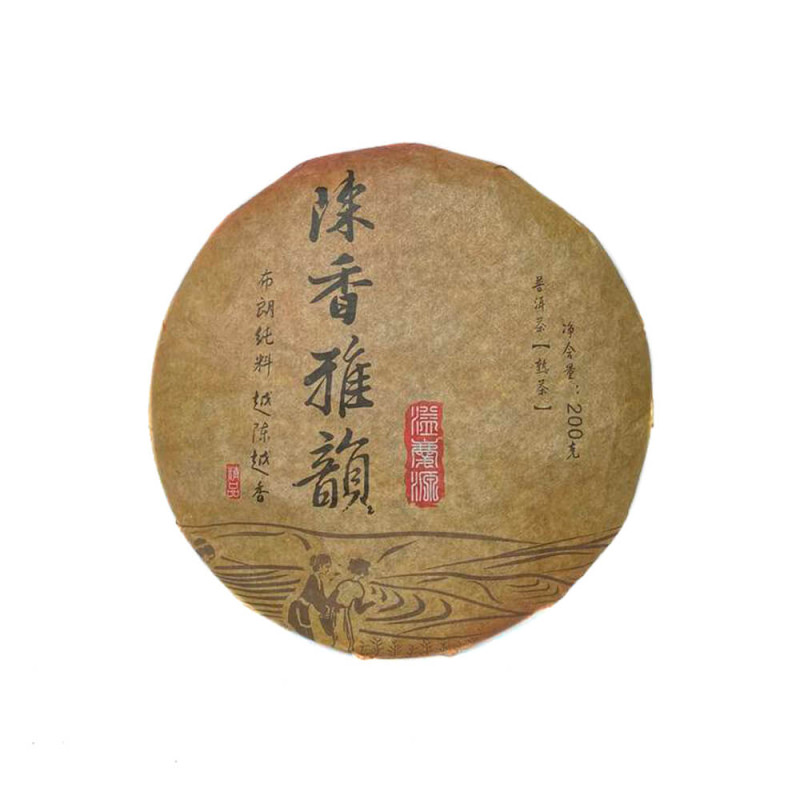 净含量：200克
普洱茶【熟茶】
溢慶源
陳香雅韻
布朗纯料 越陈越香
精品